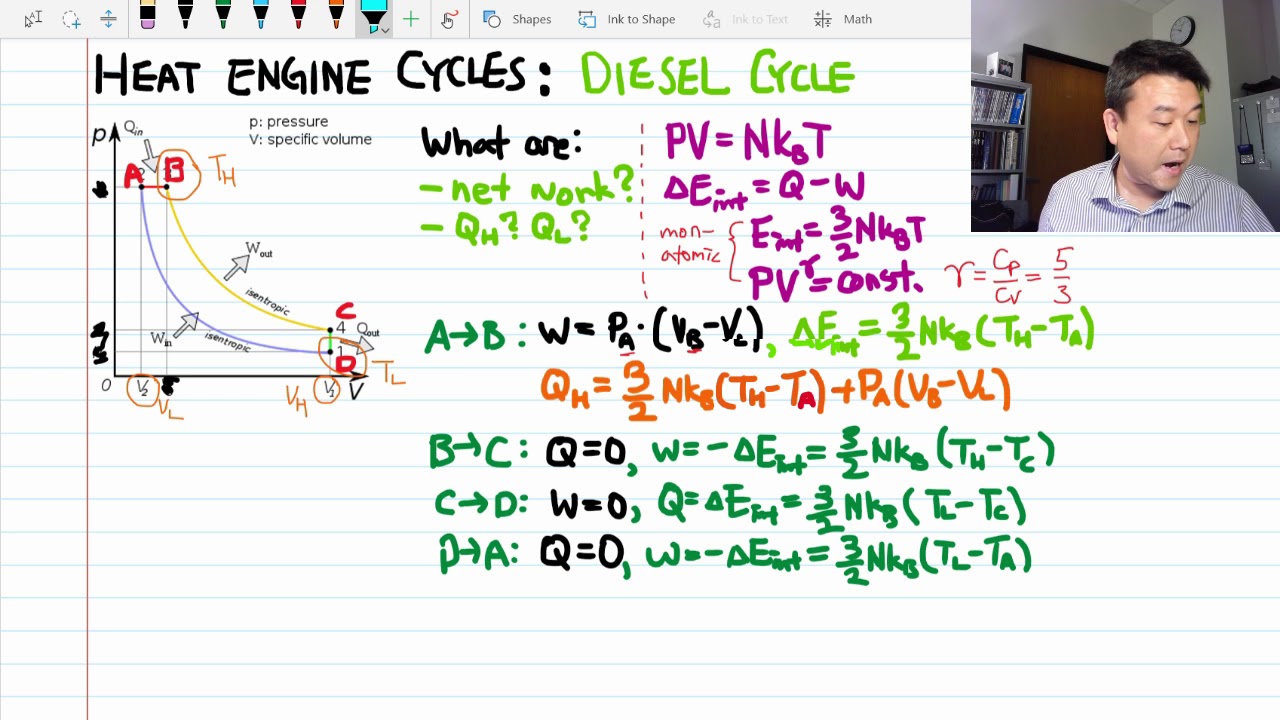 Shapes Ink to Shape Ink to Text Math
HEAT ENGINE CYCLES: DIESEL CYCLE
p Qin
p: pressure
V: specific volume
A B TH
Wout
isentropic
Win
isentropic
C
4 Qout
1
D TL
0 V2 VL VH V1 V
What are:
- net work?
- QH? QL?
PV = NkBT
ΔEint = Q - W
mon-
atomic
Eint = 3/2 NkBT
PV^γ = const. γ = CP/CV = 5/3
A→B: W = PA·(VB-VL), ΔEint = 3/2 NkB(TH-TA)
QH = 3/2 NkB(TH-TA)+PA(VB-VL)
B→C: Q=0, W=-ΔEint = 3/2 NkB(TH-TC)
C→D: W=0, Q=ΔEint = 3/2 NkB(TL-TC)
D→A: Q=0, W=-ΔEint = 3/2 NkB(TL-TA)